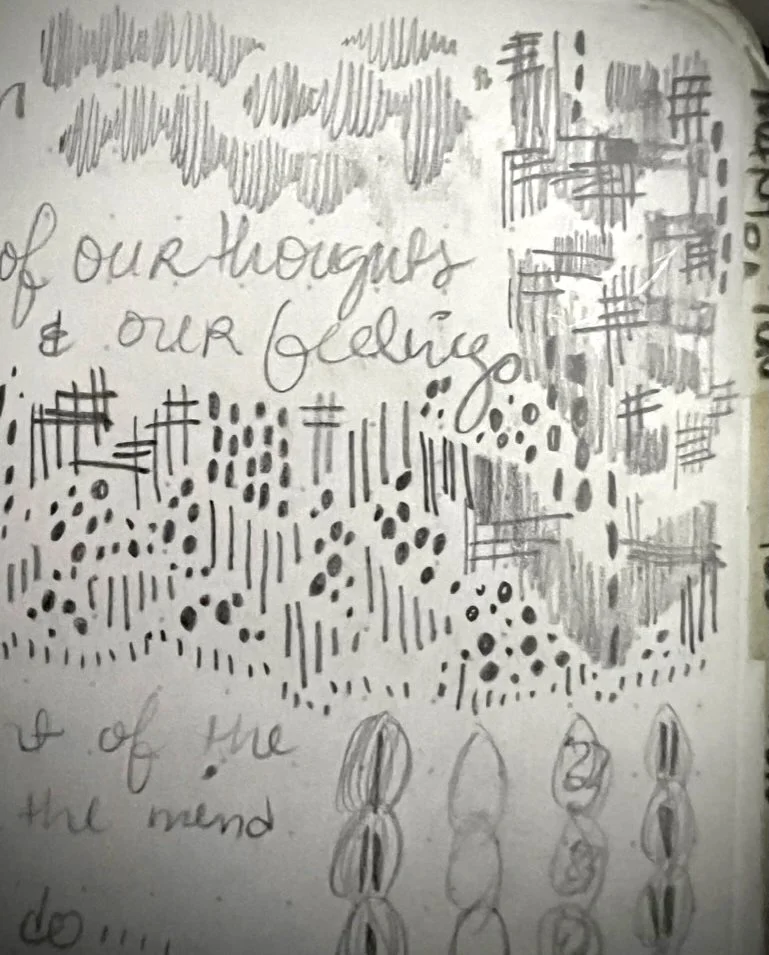 of our thoughts
& our feelings
of the
the mind
do....